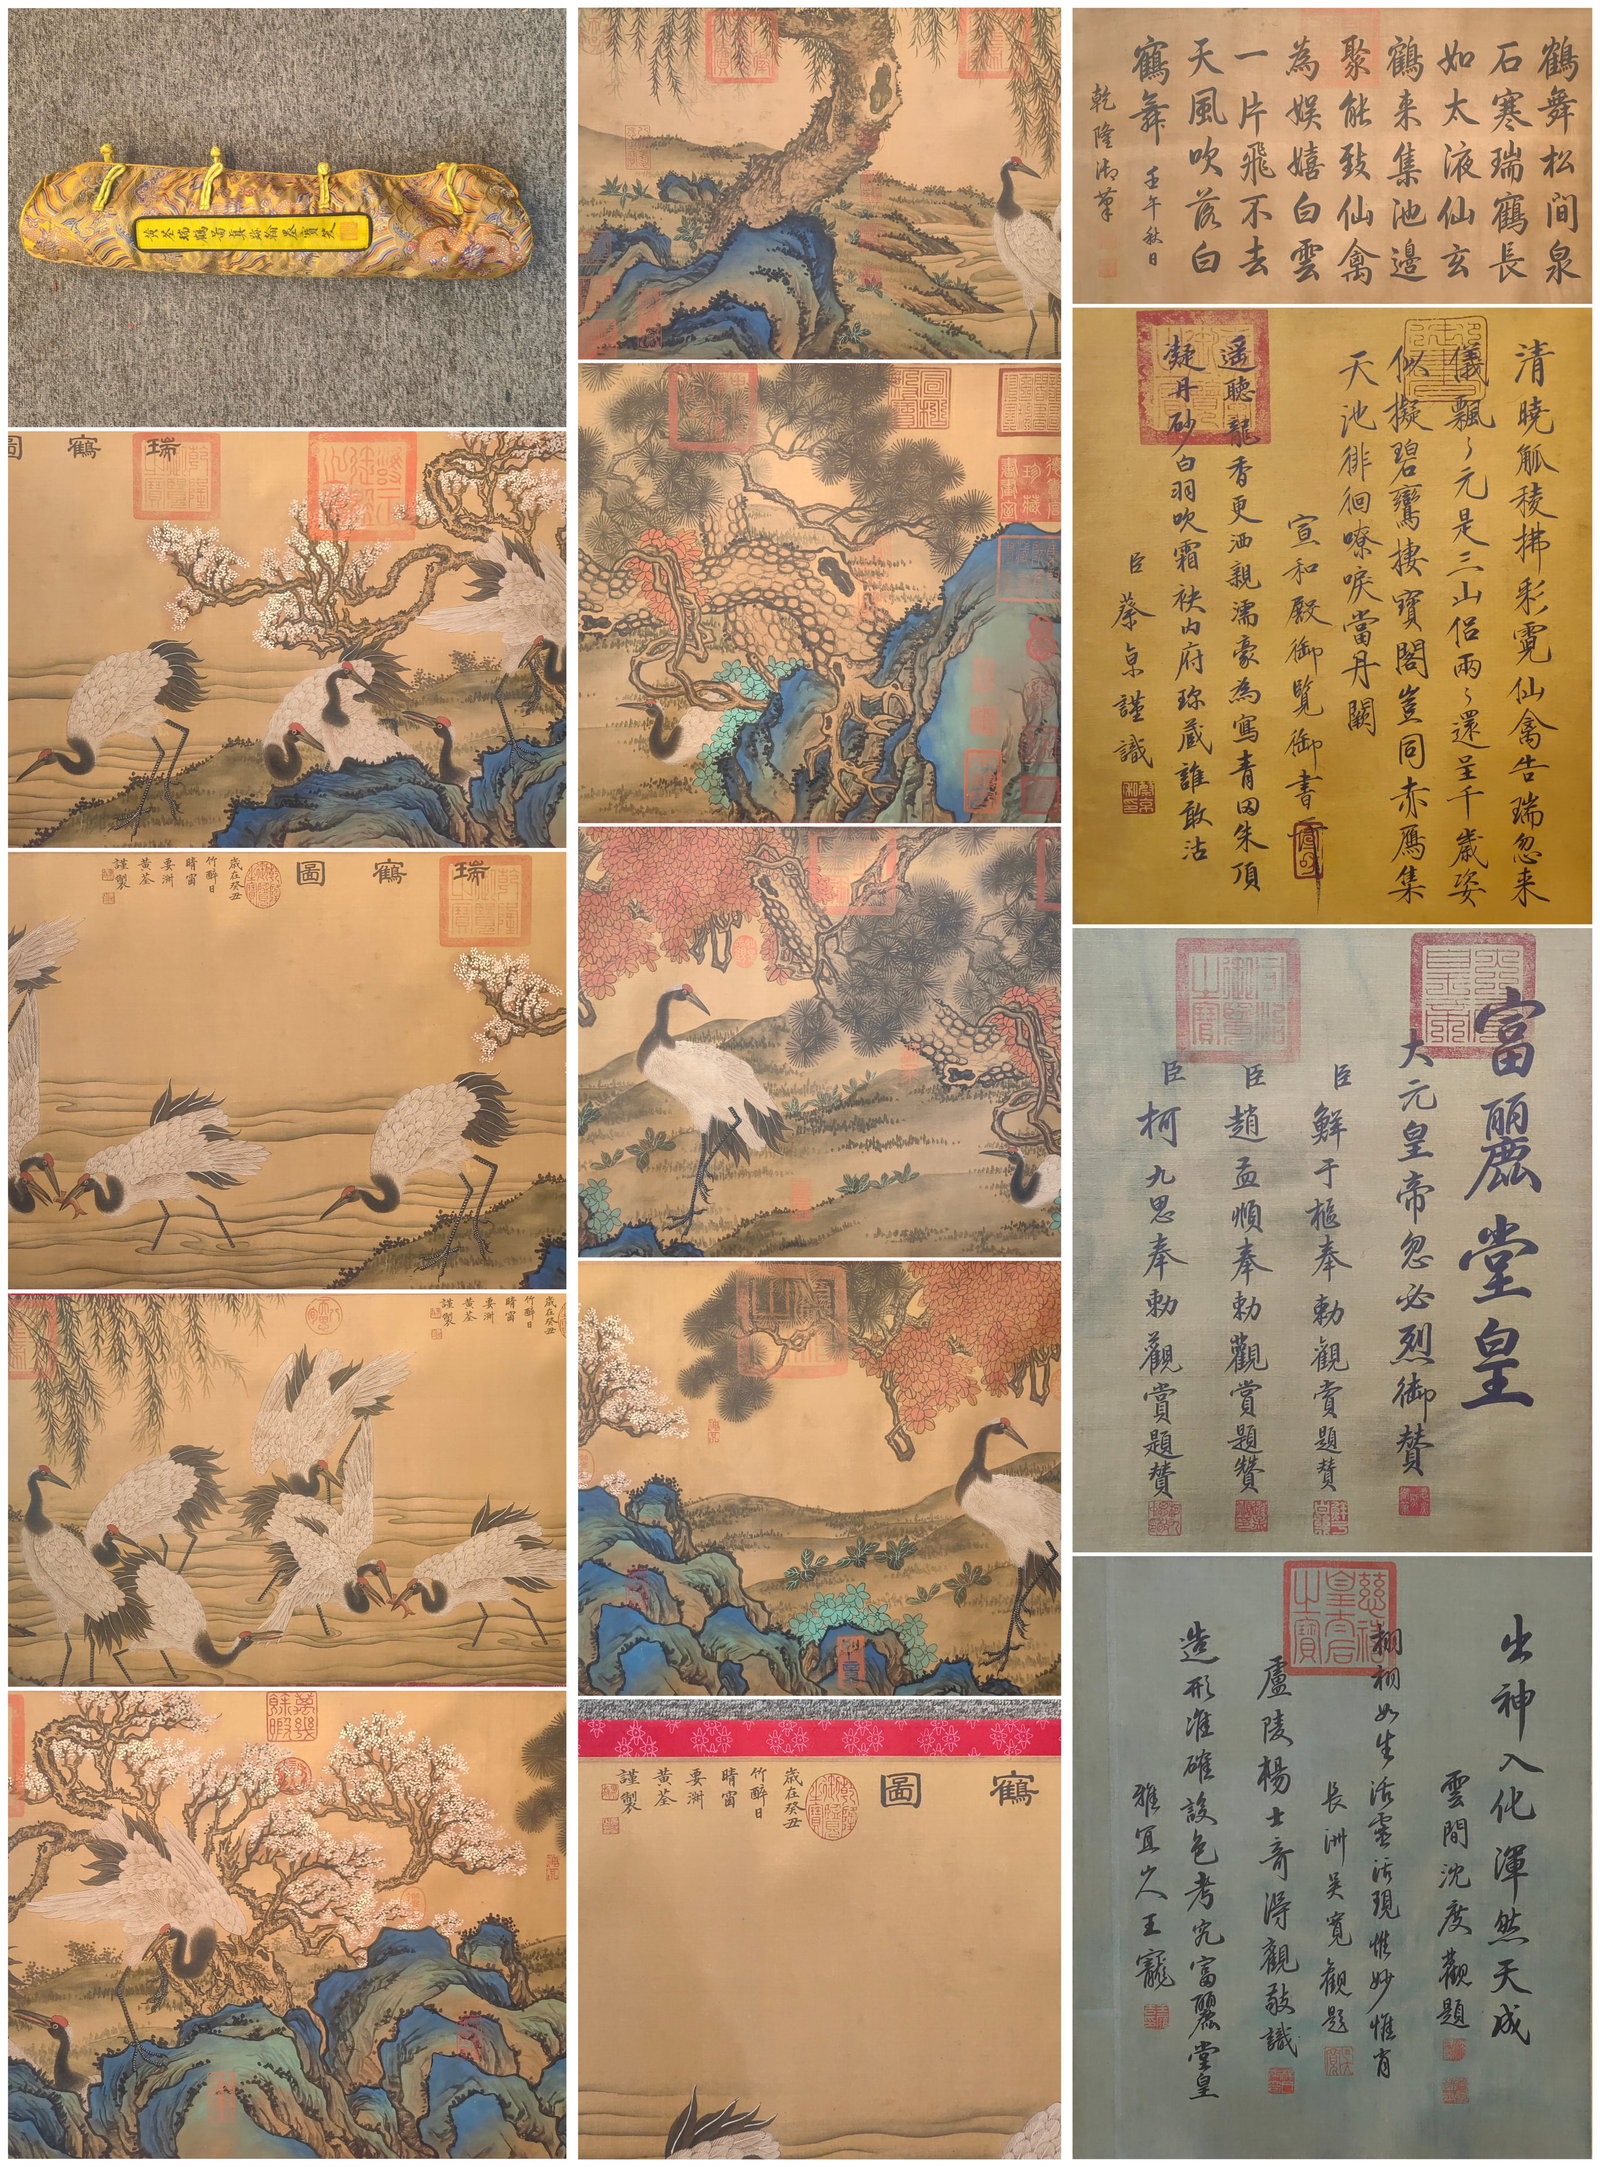 黃荃瑞鶴圖真跡
瑞鶴圖
瑞鶴圖
歲在癸丑
竹醉日
晴窗
要渊
黃荃
謹製
歲在癸丑
竹醉日
晴窗
要渊
黃荃
謹製
鶴圖
歲在癸丑
竹醉日
晴窗
要渊
黃荃
謹製
鶴舞松間泉
石寒瑞鶴長
如太液仙玄
鶴来集池邊
聚能致仙禽
為娛嬉白雲
一片飛不去
天風吹落白
鶴舞 壬午秋日
乾隆御筆
清曉觚稜拂彩霓仙禽告瑞忽来
儀飄々元是三山侣兩々還呈千歲姿
似擬碧鸞棲寶閣豈同赤雁集
天池徘徊嘹唳當丹闕
宣和殿御覽御書
遥聽龍香更洒親濡豪為寫青田朱頂
凝丹砂白羽吹霜袂内府珍蔵誰敢沽
臣蔡京謹識
富麗堂皇
大元皇帝忽必烈御赞
臣鮮于樞奉勅觀賞題赞
臣趙孟順奉勅觀賞題贊
臣柯九思奉勅觀賞題贊
出神入化渾然天成
雲間沈度觀題
栩栩如生活靈活現惟妙惟肖
長洲吴寬觀題
廬陵楊士奇得觀敬識
造形准確設色考究富麗堂皇
雅宜山人王寵